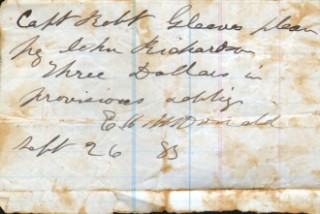 Capt Robt Gleaves pleas
pay John Richardson
Three Dollars in
provisions & oblig
E H McDonald
Sept 26 85